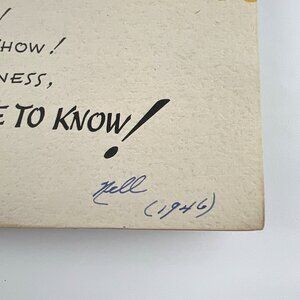 HOW!
NESS,
E TO KNOW!
Nell
(1946)